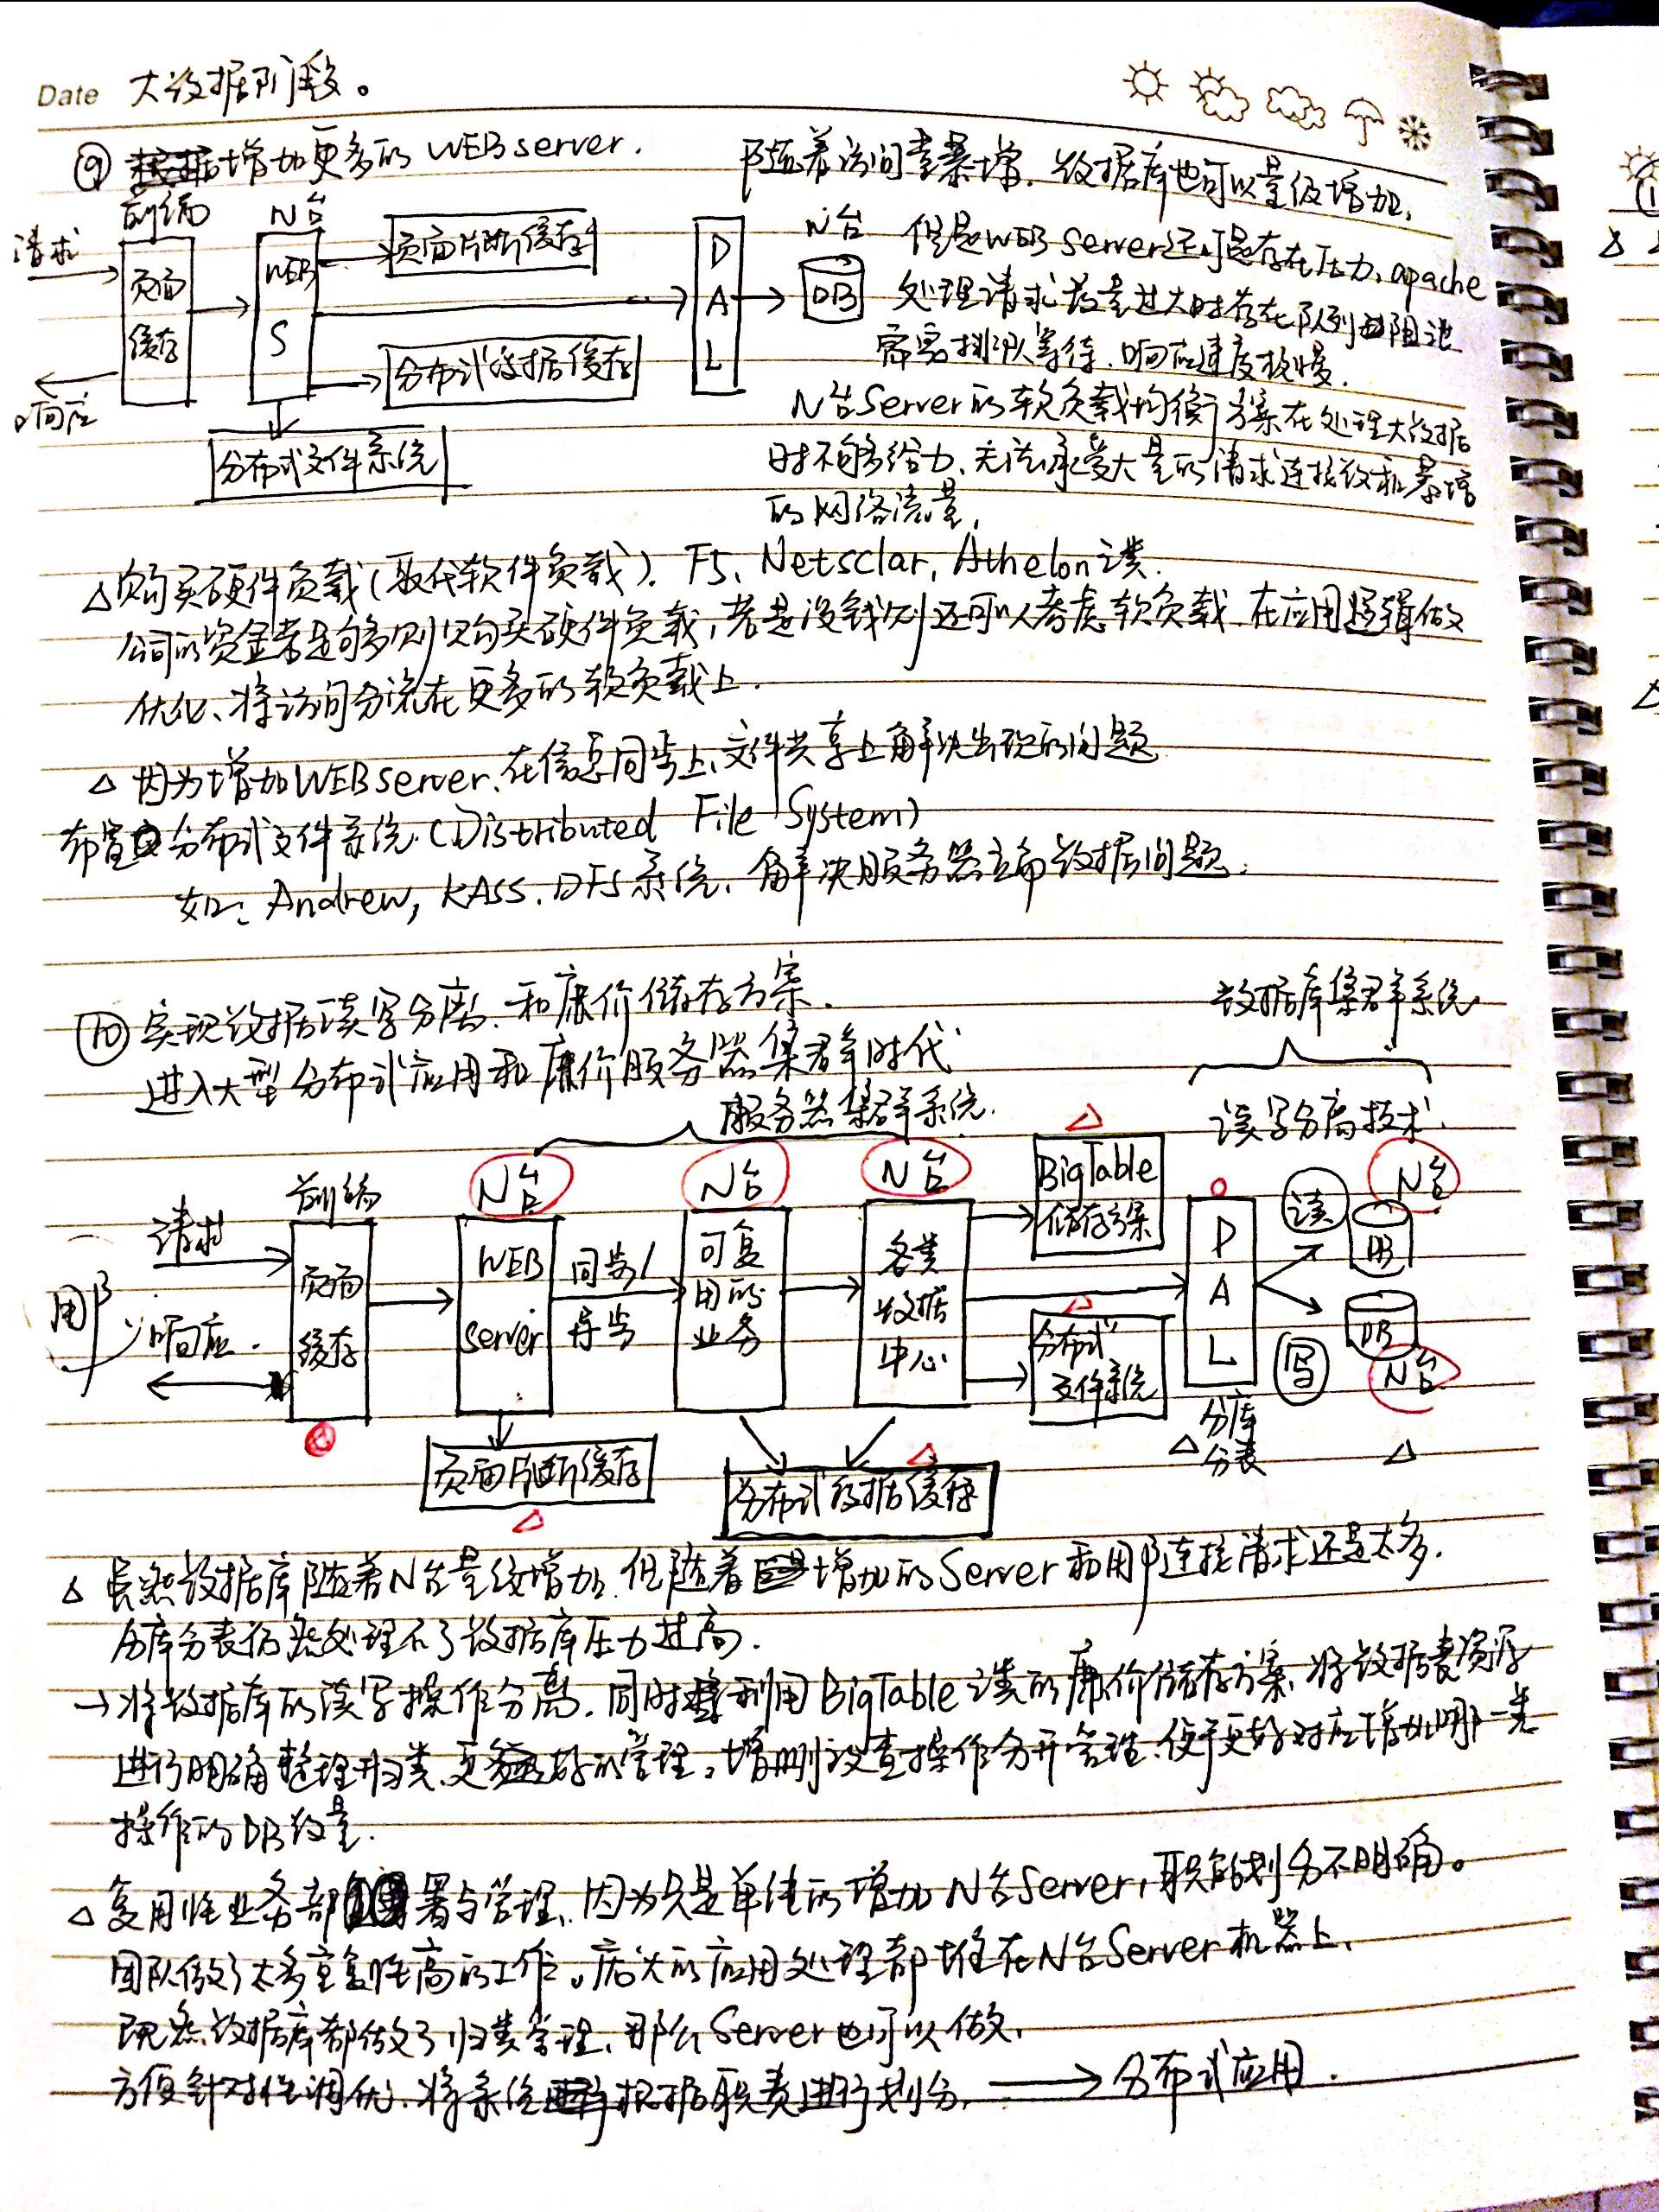 Date 大数据阶段。
⑨ 增加更多的 WEB server.
随着访问量暴增, 数据库也可以量级增加,
但是WEB Server还可是存在压力, apache
处理请求数量过大时存在队列阻池
需要排队等待, 响应速度极慢.
N台Server的软负载均衡方案在处理大数据
时不够给力, 无法承受大量的请求连接数和暴增
的网络流量,
请求
响应
前端
页面
缓存
N台
WEB
S
页面片断缓存
分布式数据缓存
分布式文件系统
D
A
L
N台
DB
△购买硬件负载(取代软件负载). F5、Netsclar, Athelon 类.
公司的资金若是够多则购买硬件负载, 若是没钱则还可以考虑软负载. 在应用逻辑做
优化、将访问分流在更多的软负载上.
△ 因为增加WEB server, 在信息同步上、文件共享上解决出现的问题
布置分布式文件系统. (Distributed File System)
如: Andrew, KASS, DFS 系统, 解决服务器之面数据问题.
⑩ 实现数据读写分离, 和廉价储存方案.
进入大型分布式应用和廉价服务器集群时代
数据库集群系统
服务器集群系统.
读写分离技术.
用户
请求
响应.
前端
页面
缓存
N台
WEB
server
同步/
异步
N台
可复
用的
业务
N台
各类
数据
中心
BigTable
储存方案
分布式
文件系统
D
A
L
分库
分表
读
写
N台
DB
DB
N台
页面片断缓存
分布式数据缓存
△ 虽然数据库随着N台量级增加, 但随着增加的Server和用户连接请求还是太多.
分库分表仍然处理不了数据库压力过高.
→ 将数据库的读写操作分离, 同时利用BigTable类的廉价储存方案, 将数据表资源
进行明确整理归类, 更好的管理, 增删改查操作分开管理, 便于更好对应增加哪一类
操作的DB数量.
△ 复用性业务部署与管理, 因为只是单纯的增加 N台Server, 职能划分不明确。
团队做了太多重复性高的工作。庞大的应用处理都堆在N台Server机器上,
既然数据库都做了归类管理, 那么Server也可以做,
方便针对性调优, 将系统根据职责进行划分. → 分布式应用.